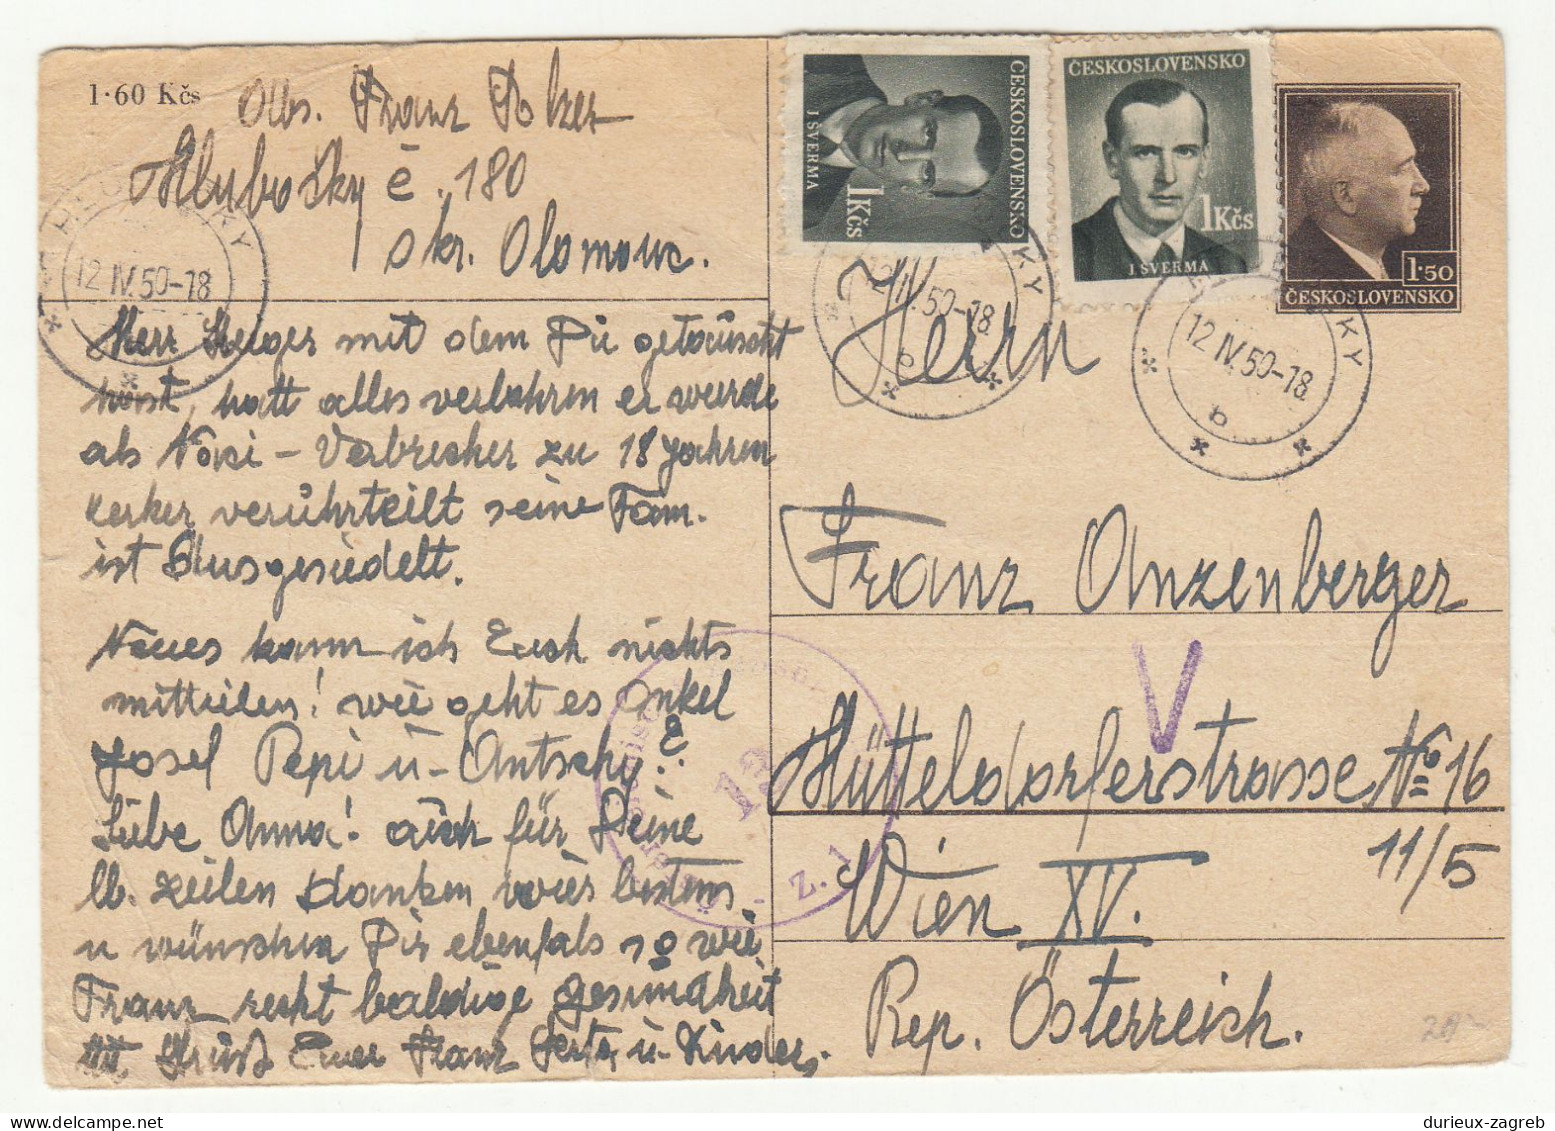 1·60 Kčs
Abs. Franz
Hlubočky č. 180
okr. Olomouc.
HLUBOČKY
12 IV. 50-18
ČESKOSLOVENSKO
J ŠVERMA
1Kčs
ČESKOSLOVENSKO
1Kčs
J ŠVERMA
1·50
ČESKOSLOVENSKO
12 IV. 50-18
b
12 IV. 50-18
b
Herr mit dem Du getäuscht
hast, hatt alles verlohren er wurde
als Nazi - Verbrecher zu 18 Jahren
kerker verührteilt seine Fam.
ist Ausgesiedelt.
Neues kann ich Euch nichts
mitteilen! wie geht es Onkel
Josef Pepi u - Antschy?
Liebe Anna! auch für Deine
lb. zeilen danken wier bestens
u wünschen Dir ebenfals so wie
Franz recht baldige gesundheit
mit Gruß Euer Franz Herta u - Kinder.
Herrn
Franz Anzenberger
V
Hütteldorferstrasse No 16
11/5
Wien XV.
Rep. Österreich.
12
Z. 1
20~
durieux-zagreb